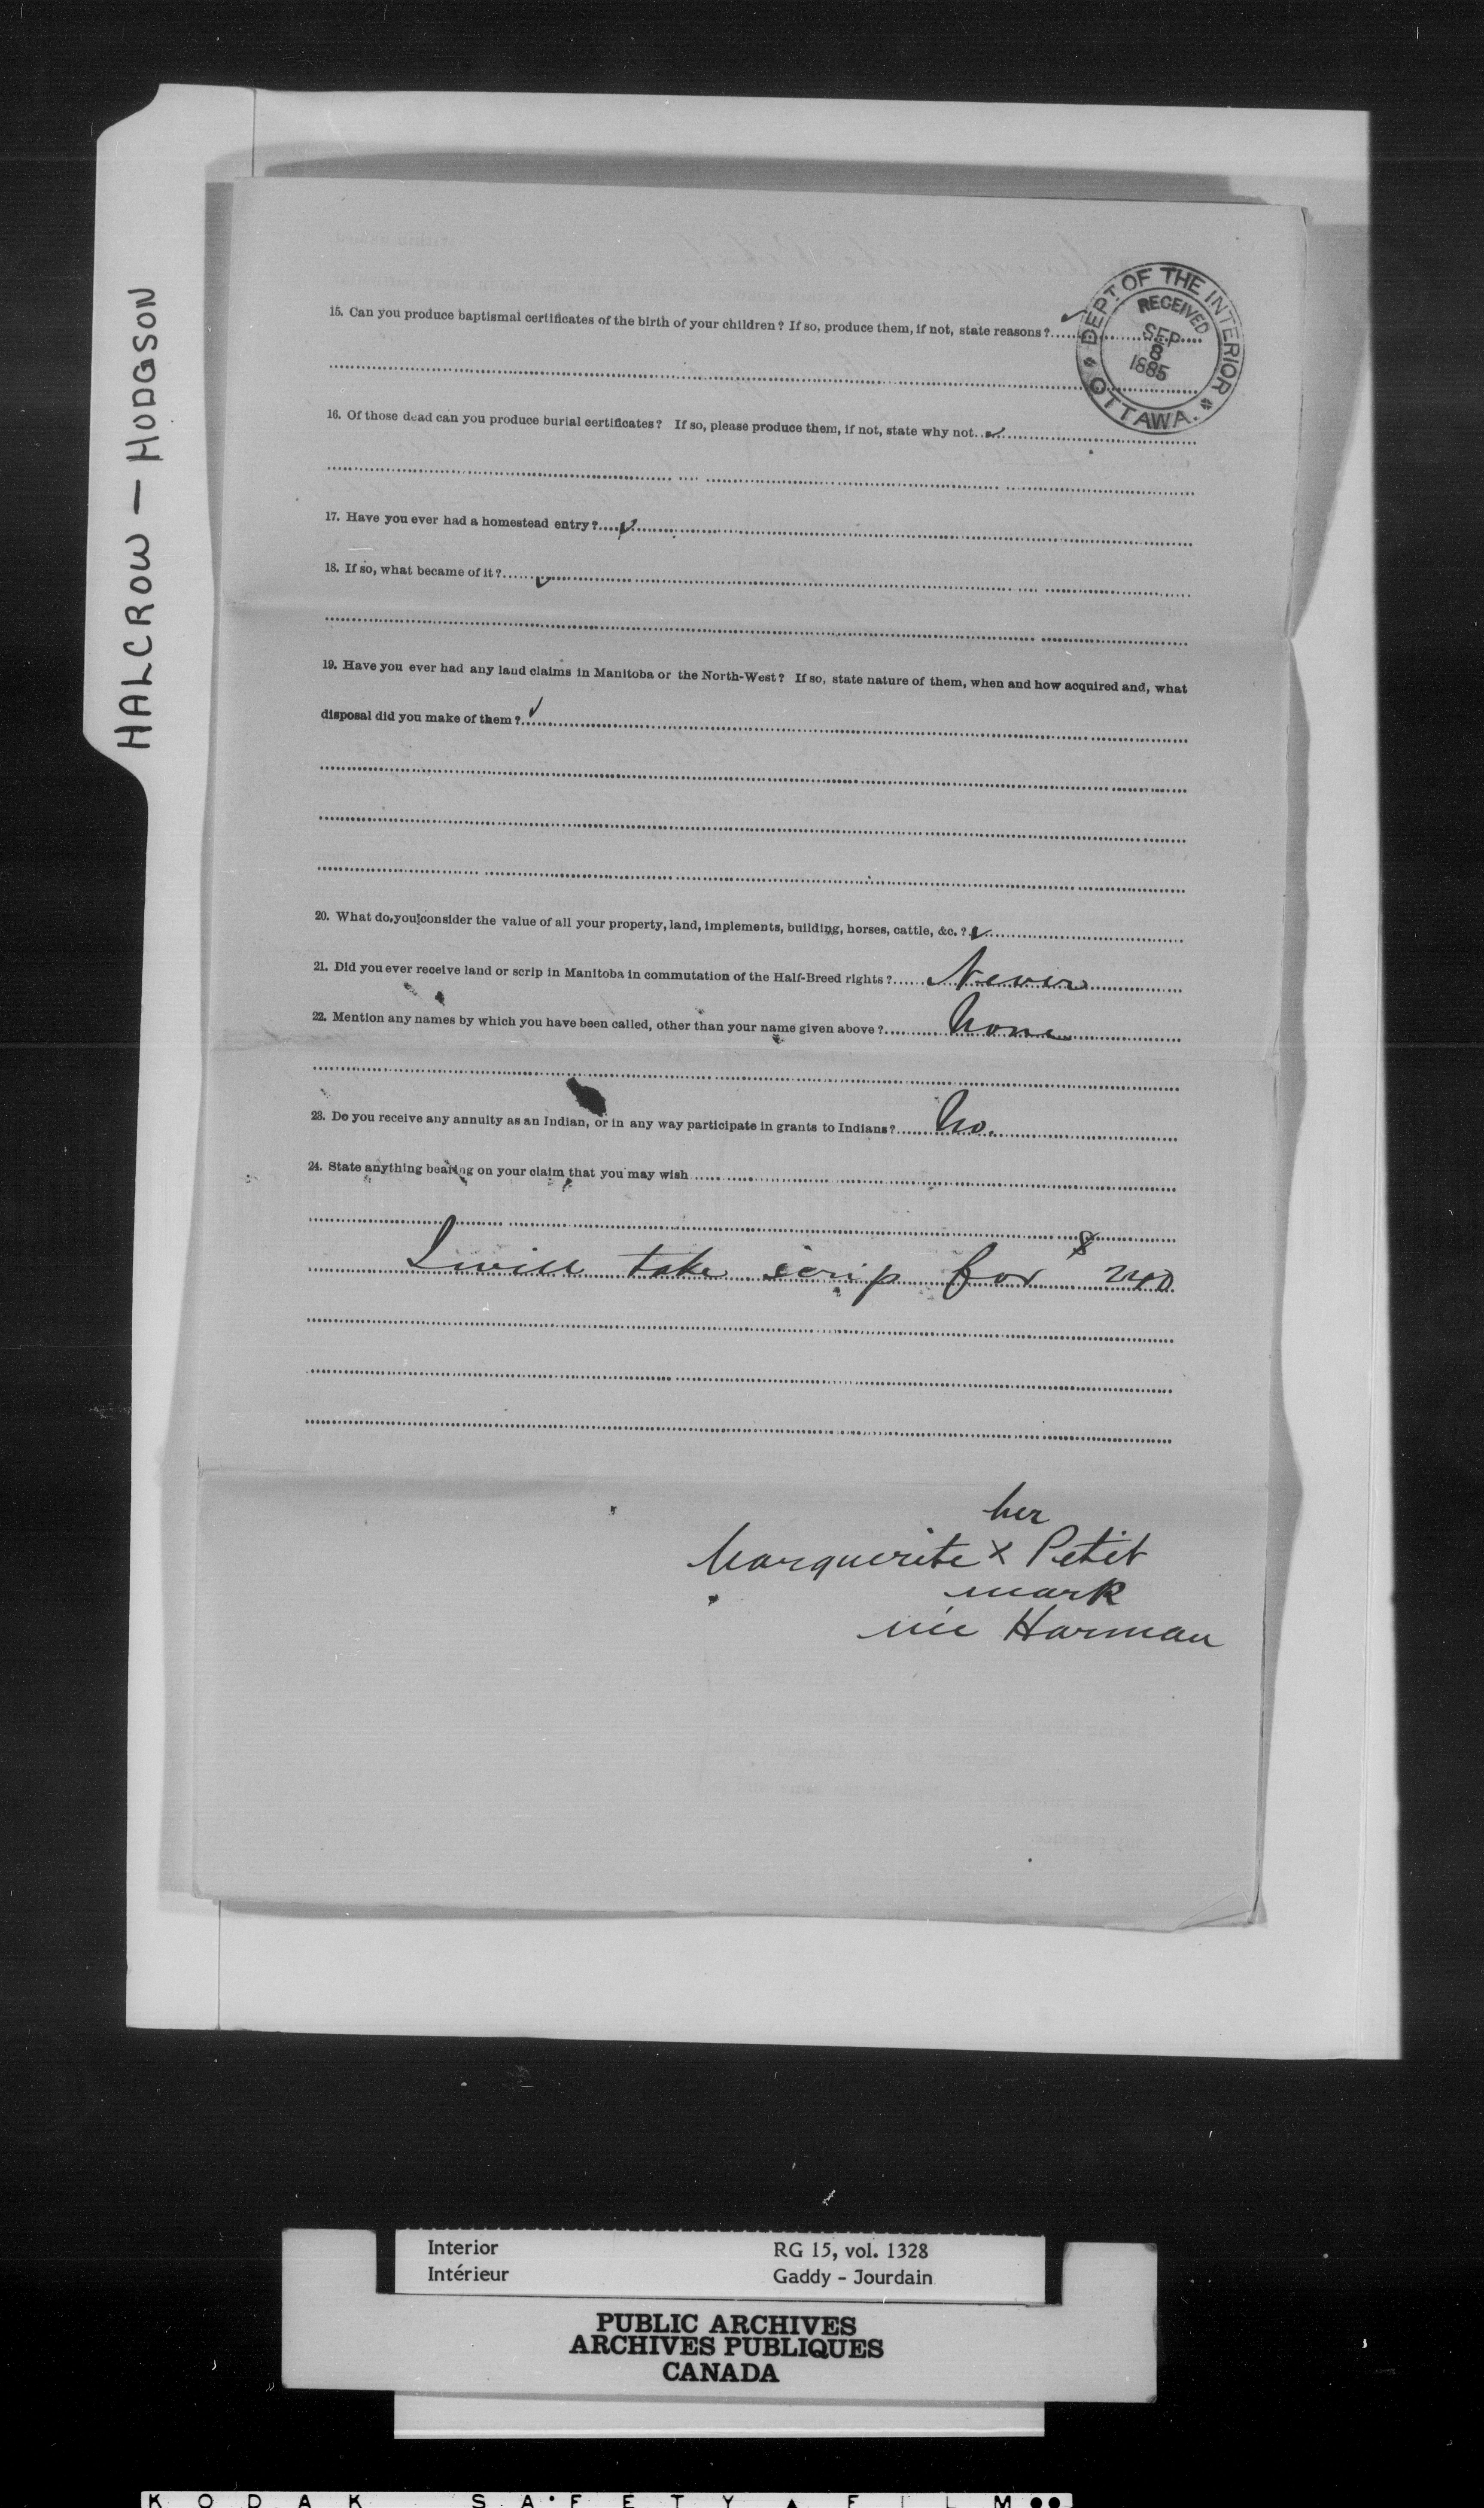 HALCROW — HODGSON
DEPT OF THE INTERIOR
RECEIVED
SEP
8
1885
OTTAWA.
15. Can you produce baptismal certificates of the birth of your children? If so, produce them, if not, state reasons? ✓
16. Of those dead can you produce burial certificates? If so, please produce them, if not, state why not. ✓
17. Have you ever had a homestead entry? ✓
18. If so, what became of it? ✓
19. Have you ever had any land claims in Manitoba or the North-West? If so, state nature of them, when and how acquired and, what
disposal did you make of them? ✓
20. What do you consider the value of all your property, land, implements, building, horses, cattle, &c.? ✓
21. Did you ever receive land or scrip in Manitoba in commutation of the Half-Breed rights? Never
22. Mention any names by which you have been called, other than your name given above? None
23. Do you receive any annuity as an Indian, or in any way participate in grants to Indians? No.
24. State anything bearing on your claim that you may wish
I will take scrip for $ 240
her
Marguerite X Petit
mark
née Harman
Interior
RG 15, vol. 1328
Intérieur
Gaddy - Jourdain
PUBLIC ARCHIVES
ARCHIVES PUBLIQUES
CANADA
KODAK SAFETY ▲ FILM